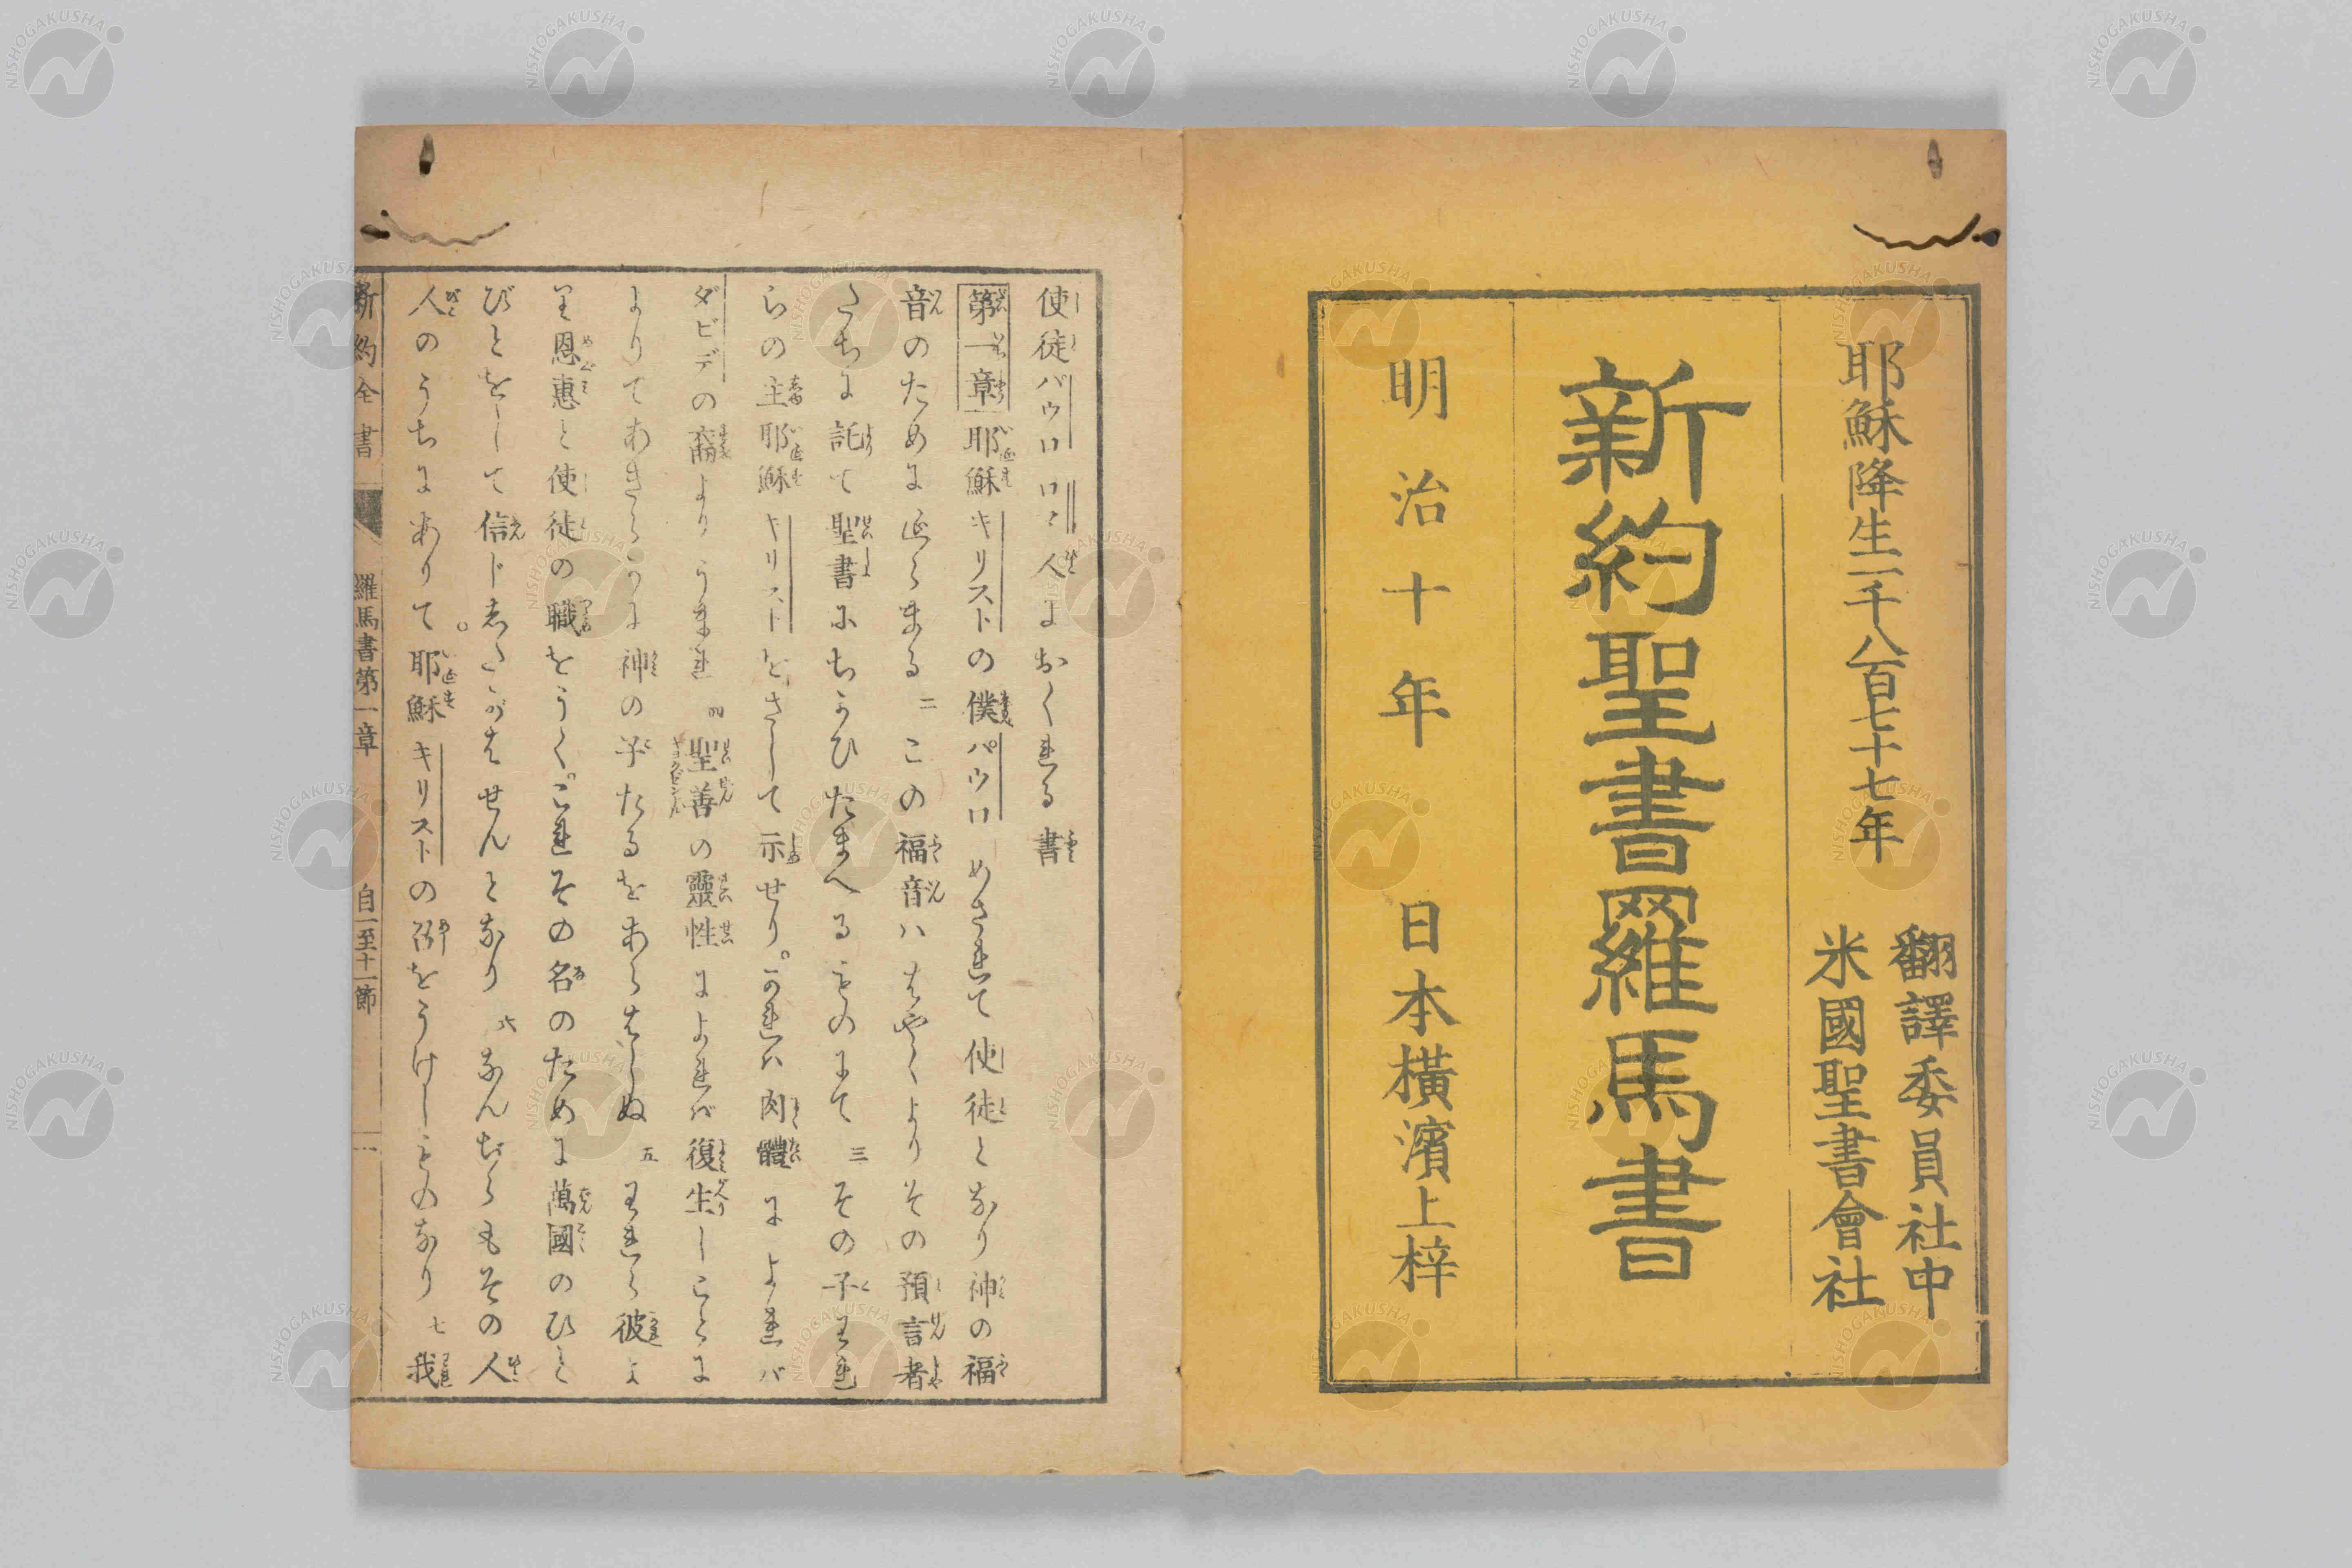 耶穌降生一千八百七十七年
翻譯委員社中
米國聖書會社
新約聖書羅馬書
明治十年　日本横濱上梓
使徒バウロロマ人におくれる書
第一章耶穌キリストの僕パウロめされて使徒となり神の福
音のためにえらまる二この福音ハはやくよりその預言者
たちに託て聖書にちかひたまへるものにて三その子われ
らの主耶穌キリストをさして示せり。かれハ肉體によれバ
ダビデの裔よりうまれ四聖善の靈性によれバ復生しことに
よりてあきらかに神の子たるをあらはしぬ五われら彼よ
り恩惠と使徒の職をうく。これその名のために萬國のひと
びとをして信じしたがはせんとなり六なんぢらもその人
人のうちにありて。耶穌キリストの召をうけしものなり七我
新約全書　羅馬書第一章　自一至十一節　一
NISHOGAKUSHA